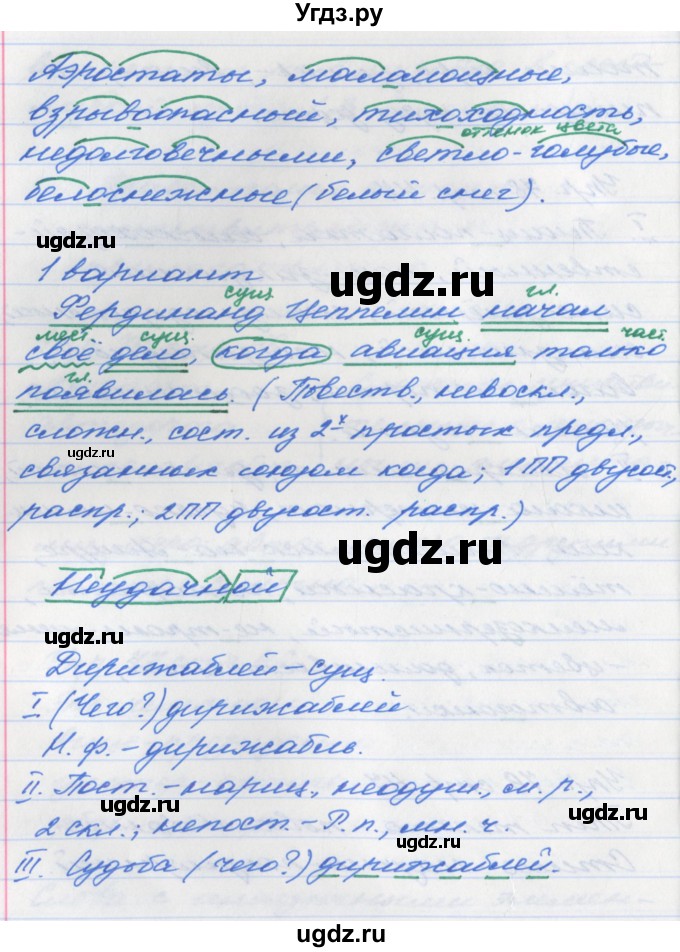 Угдз.ру
Аэростаты, маломощные,
взрывоопасный, тихоходность,
оттенок цвета
недолговечными, светло-голубые,
белоснежные (белый снег).
ugdz.ru
ugdz.ru
1 вариант
сущ. гл.
Фердинанд Цеппелин начал
мест. сущ. сущ. част.
своё дело, когда авиация только
гл.
появилась. (Повеств., невоскл.,
ugdz.ru
сложн., сост. из 2х простых предл.,
связанных союзом когда; 1ПП двусост.,
распр.; 2ПП двусост. распр.)
ugdz.ru
Неудачной
ugdz.ru
Дирижаблей – сущ.
I (Чего?) дирижаблей
Н. ф. – дирижабль.
II. Пост. – нариц., неодуш., м. р.,
ugdz.ru
ugdz.ru
2 скл.; непост. – Р. п., мн. ч.
ugdz.ru
III. Судьба (чего?) дирижаблей.
ugdz.ru